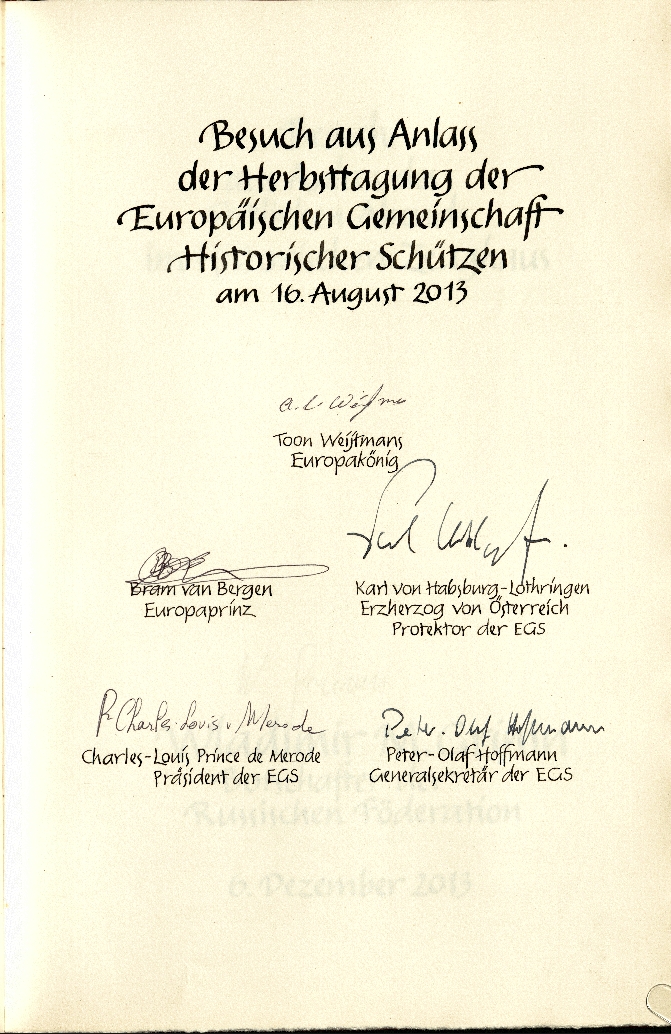 Besuch aus Anlass
der Herbsttagung der
Europäischen Gemeinschaft
Historischer Schützen
am 16. August 2013
Toon Weijtmans
Europakönig
Bram van Bergen
Europaprinz
Karl von Habsburg-Lothringen
Erzherzog von Österreich
Protektor der EGS
P. Charles-Louis v. Merode
Charles-Louis Prince de Merode
Präsident der EGS
Peter-Olaf Hoffmann
Peter-Olaf Hoffmann
Generalsekretär der EGS
Russischen Föderation
6. Dezember 2013